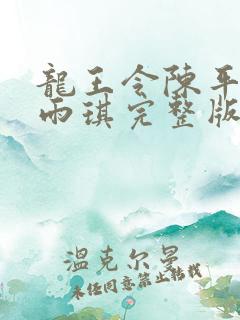 龍王令陳平
雨琪完整版
溫克尔曼
未经同意禁止转载